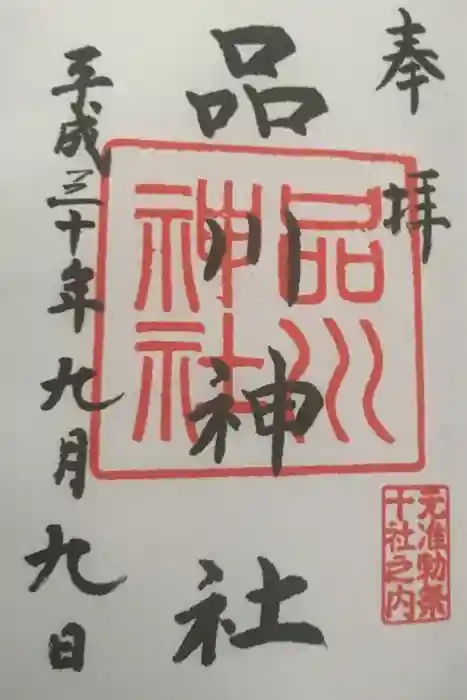 奉拝
品川神社
平成三十年九月九日
品川
神社
元准勅祭
十社之内